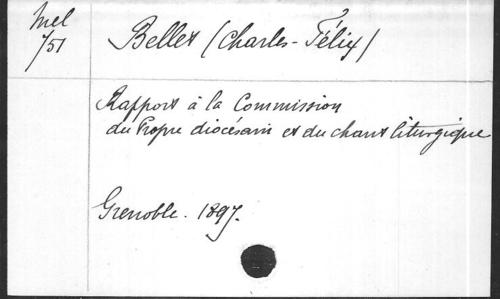 Mel
/51
Bellet (Charles-Félix)
Rapport à la Commission
du Propre diocésain et du chant liturgique
Grenoble. 1897.